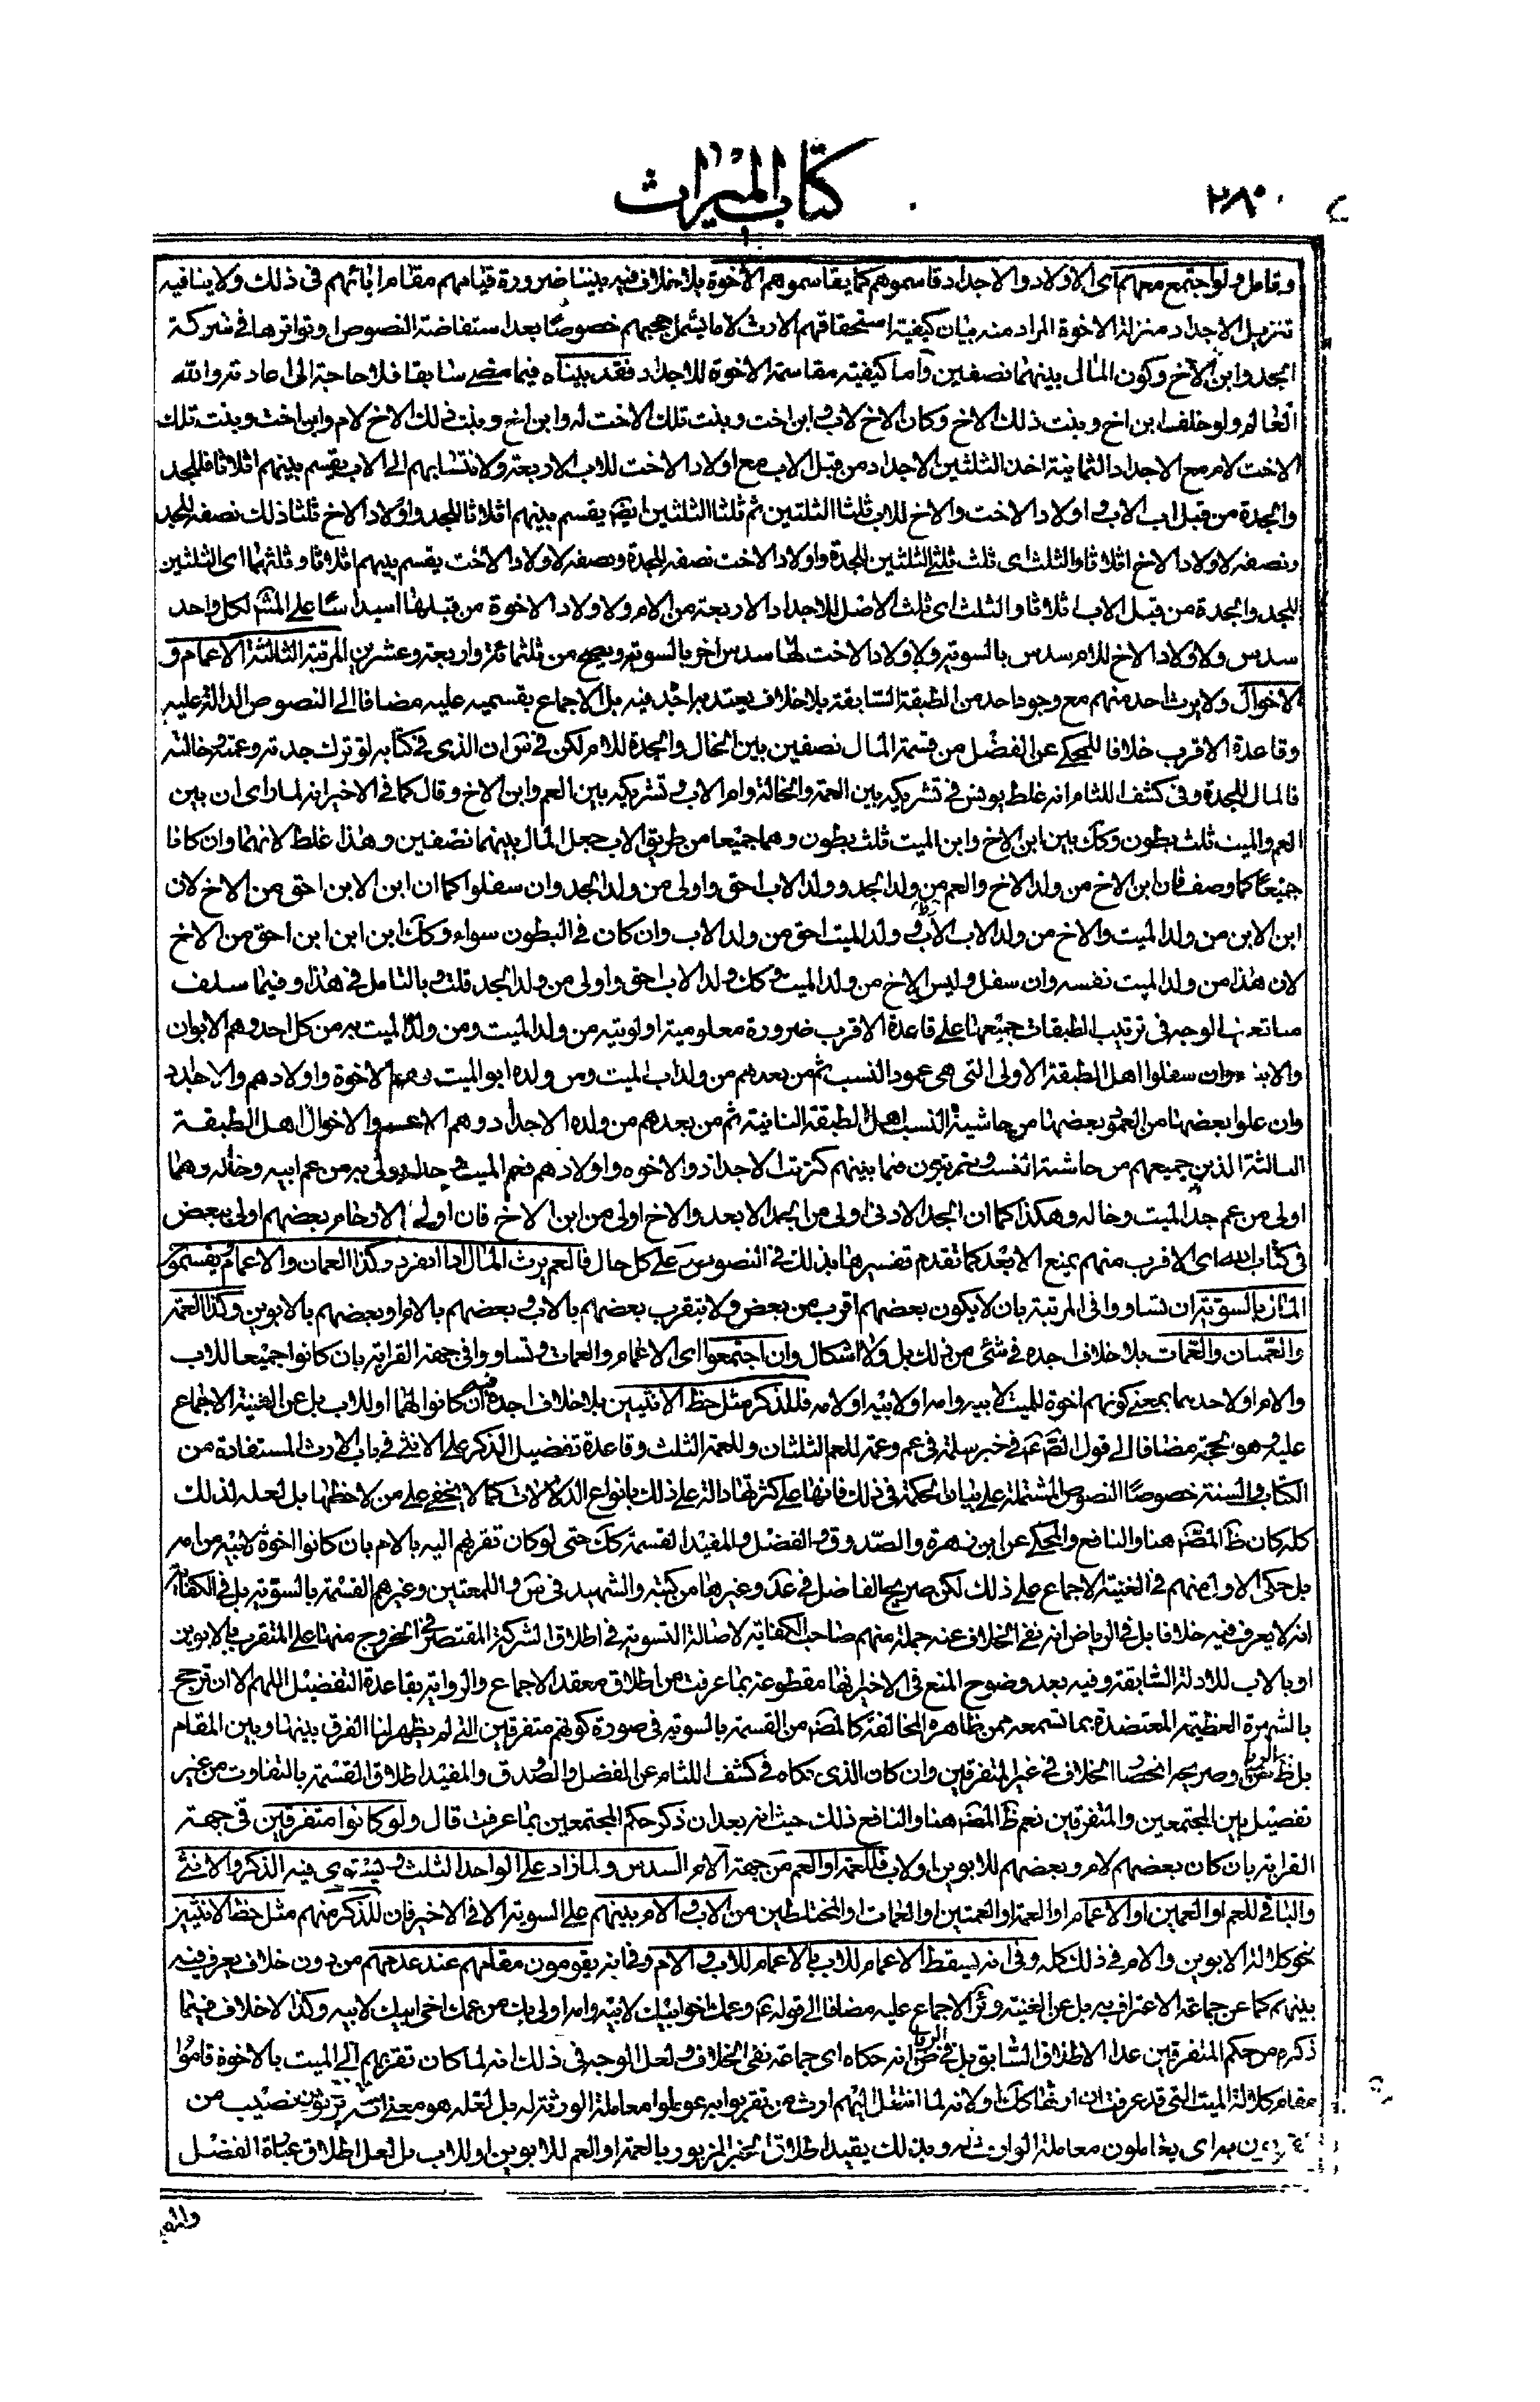 ٢٨٠
كتاب الميراث
وتامل ولو اجتمع معهم اى الاولاد والاجداد قاسموهم كما يقاسموهم الاخوة بلا خلاف فيه بيننا ضرورة قيامهم مقام ابائهم فى ذلك ولا ينافيه
تنزيل الاجداد منزلة الاخوة المراد منه بيان كيفية استحقاقهم الارث لا ما يشمل حجبهم خصوصا بعد استفاضة النصوص او تواترها فى شركة
الجد وابن الاخ وكون المال بينهما نصفين وأما كيفية مقاسمة الاخوة للاجداد فقد بيناه فيما مضى سابقا فلا حاجة الى اعادته والله
العالم ولو خلف ابن اخ وبنت ذلك الاخ وكان الاخ لاب وابن اخت وبنت تلك الاخت له وابن اخ وبنت ذلك الاخ لام وابن اخت وبنت تلك
الاخت لام مع الاجداد الثمانية اخذ الثلثين الاجداد من قبل الاب مع اولاد الاخت للاب الاربعة ولانتسابهم الى الاب يقسم بينهم اثلاثا فللجد
والجدة من قبل اب الاب و اولاد الاخت والاخ للاب ثلثا الثلثين ثم ثلثا الثلثين ايضا يقسم بينهم اثلاثا للجد واولاد الاخ ثلثا ذلك نصفه للجد
ونصفه لاولاد الاخ اثلاثا والثلث اى ثلث ثلثى الثلثين للجدة واولاد الاخت نصفه للجدة ونصفه لاولاد الاخت يقسم بينهم اثلاثا وثلثهما اى الثلثين
للجد والجدة من قبل الاب اثلاثا والثلث اى ثلث الاصل للاجداد الاربعة من الام ولاولاد الاخوة من قبلها اسداسا على المش لكل واحد
سدس ولاولاد الاخ للام سدس بالسوية ولاولاد الاخت لها سدس اخر بالسوية ويصح من ثلثمائة واربعة وعشرين المرتبة الثالثة الاعمام و
الاخوال ولا يرث احد منهم مع وجود احد من الطبقة السابقة بلا خلاف يعتد به اجده فيه بل الاجماع بقسميه عليه مضافا الى النصوص الدالة عليه
وقاعدة الاقرب خلافا للمحكى عن الفضل من قسمة المال نصفين بين الخال والجدة للام لكن فى ان الذى فى كتابه لو ترك جدته وعمته وخالته
فالمال للجدة وفى كشف اللثام انه غلط يونس فى تشريكه بين العمة والخالة وام الاب و تشريكه بين العم وابن الاخ وقال كما فى الاخير انه لما راى ان بين
العم والميت ثلث بطون وكك بين ابن الاخ وابن الميت ثلث بطون وهما جميعا من طريق الاب جعل المال بينهما نصفين وهذا غلط لانهما وان كانا
جميعا كما وصف فان ابن الاخ من ولد الاخ والعم من ولد الجد وولد الاب احق واولى من ولد الجد وان سفلوا كما ان ابن الابن احق من الاخ لان
ابن الابن من ولد الميت والاخ من ولد الاب و ولد الميت احق من ولد الاب وان كان فى البطون سواء وكك ابن ابن ابن احق من الاخ
لان هذا من ولد الميت نفسه وان سفل وليس الاخ من ولد الميت وكك ولد الاب احق واولى من ولد الجد قلت وبالتامل فى هذا وفيما سلف
الوجه فى ترتيب الطبقات جميعها على قاعدة الاقرب ضرورة معلومية اولوية من ولد الميت ومن ولد الميت به من كل احد وهم الابوان
وان سفلوا اهل الطبقة الاولى التى هى عمود النسب ثم من بعدهم من ولد اب الميت ومن ولده ابو الميت وهم الاخوة واولادهم والاجداد
وان علوا بعضها من العمود وبعضها من حاشية النسب اهل الطبقة الثانية ثم من بعدهم من ولده الاجداد وهم الاعمام والاخوال اهل الطبقة
الثالثة الذين جميعهم من حاشية النسب فيما بينهم كترتب الاجداد والاخوه واولادهم فعم الميت و خاله اولى به من عم ابيه وخاله وهما
اولى من عم جد الميت وخاله وهكذا كما ان الجد الادنى اولى من الجد الابعد والاخ اولى من ابن الاخ فان اولى الارحام بعضهم اولى ببعض
فى كتاب الله اى الاقرب منهم يمنع الابعد كما تقدم تفسيرها بذلك فى النصوص على كل حال فالعم يرث المال اذا انفرد وكذا العمان والاعمام يقسمون
المال بالسوية ان تساووا فى المرتبة بان لا يكون بعضهم اقرب من بعض ولا يتقرب بعضهم بالاب و بعضهم بالام او بعضهم بالابوين وكذا العمة
والعمتان والعمات بلا خلاف اجده فى شئ من ذلك بل ولا اشكال وان اجتمعوا اى الاعمام والعمات وتساووا فى جهة القرابة بان كانوا جميعا للاب
والام او لاحدهما بمعنى كونهم اخوة للميت لابيه وامه او لابيه او لامه فللذكر مثل حظ الانثيين بلا خلاف اجده فيه ان كانوا لهما او للاب بل عن الغنية الاجماع
عليه وهو الحجة مضافا الى قول الصادق فى خبر سلمة فى عم وعمة للعم الثلثان وللعمة الثلث وقاعدة تفضيل الذكر على الانثى فى باب الارث المستفادة من
الكتاب والسنة خصوصا النصوص المشتملة على بيان الحكمة فى ذلك فانها على كثرتها دالة على ذلك بانواع الدلالات كما لا يخفى على من لاحظها بل لعله لذلك
كله كان ظ المصنف هنا والنافع والمحكى عن ابن زهرة والصدوق و الفضل والمفيد القسمة كك حتى لو كان تقربهم اليه بالام بان كانوا اخوة لابيه من امه
بل حكى الاول منهم فى الغنية الاجماع على ذلك لكن صريح الفاضل فى عد وغيرها من كتبه والشهيد فى س واللمعتين وغيرهم القسمة بالسوية بل فى الكفاية
انه لا يعرف فيه خلافا بل فى الرياض انه نفى الخلاف عنه جملة منهم صاحب الكفاية لاصالة التسوية فى اطلاق الشركة المقتصر فى الخروج منها على المتقرب بالابوين
او بالاب للادلة السابقة وفيه بعد وضوح المنع فى الاخير انها مقطوعة بما عرفت من اطلاق معقد الاجماع والرواية بقاعدة التفضيل اللهم الا ان ترجح
بالشهرة العظيمة المعتضدة بما تسمعه ممن ظاهره المخالفة كالمصنف من القسمة بالسوية فى صورة كونهم متفرقين التى لم يظهر لنا الفرق بينها وبين المقام
بل ظ الرياض وصريحه انحصار الخلاف فى غير المتفرقين وان كان الذى حكاه فى كشف اللثام عن الفضل والصدوق والمفيد اطلاق القسمة بالتفاوت من غير
تفصيل بين المجتمعين والمتفرقين نعم ظ المصنف هنا والنافع ذلك حيث انه بعد ان ذكر حكم المجتمعين بما عرفت قال ولو كانوا متفرقين فى جهة
القرابة بان كان بعضهم لام وبعضهم للابوين او لاب فللعمة او العم من جهة الام السدس ولما زاد على الواحد الثلث و يستوى فيه الذكر والانثى
والباقى للعم او العمين او الاعمام او العمة او العمتين او العمات او المختلطين من الاب و الام بينهم على السوية الا فى الاخير فان للذكر منهم مثل حظ الانثيين
نحو كلالة الابوين والام فى ذلك كله وفى انه يسقط الاعمام للاب بالاعمام للاب و الام وفى انه يقومون مقامهم عند عدمهم من دون خلاف يعرف فيه
بينهم كما عن جماعة الاعتراف به بل عن الغنية وئر الاجماع عليه مضافا الى قوله ع وعمك اخو ابيك لابيه وامه اولى بك من عمك اخى ابيك لابيه وكذا لا خلاف فيما
ذكره من حكم المتفرقين عدا الاطلاق السابق بل فى الرياض انه حكاه اى جماعة نفى الخلاف ولعل الوجه فى ذلك انه لما كان تقربهم الى الميت بالاخوة قاموا
مقام كلالة الميت التى قد عرفت ان ارثها كك ولانه لما انتقل اليهم ارث من تقربوا به عوملوا معاملة الورثة له بل لعله هو معنى نصيب من
به اى يعاملون معاملة الوارث له وبذلك يقيد اطلاق الخبر المزبور بالعمة او العم للابوين او للاب بل لعل اطلاق عبارة الفضل